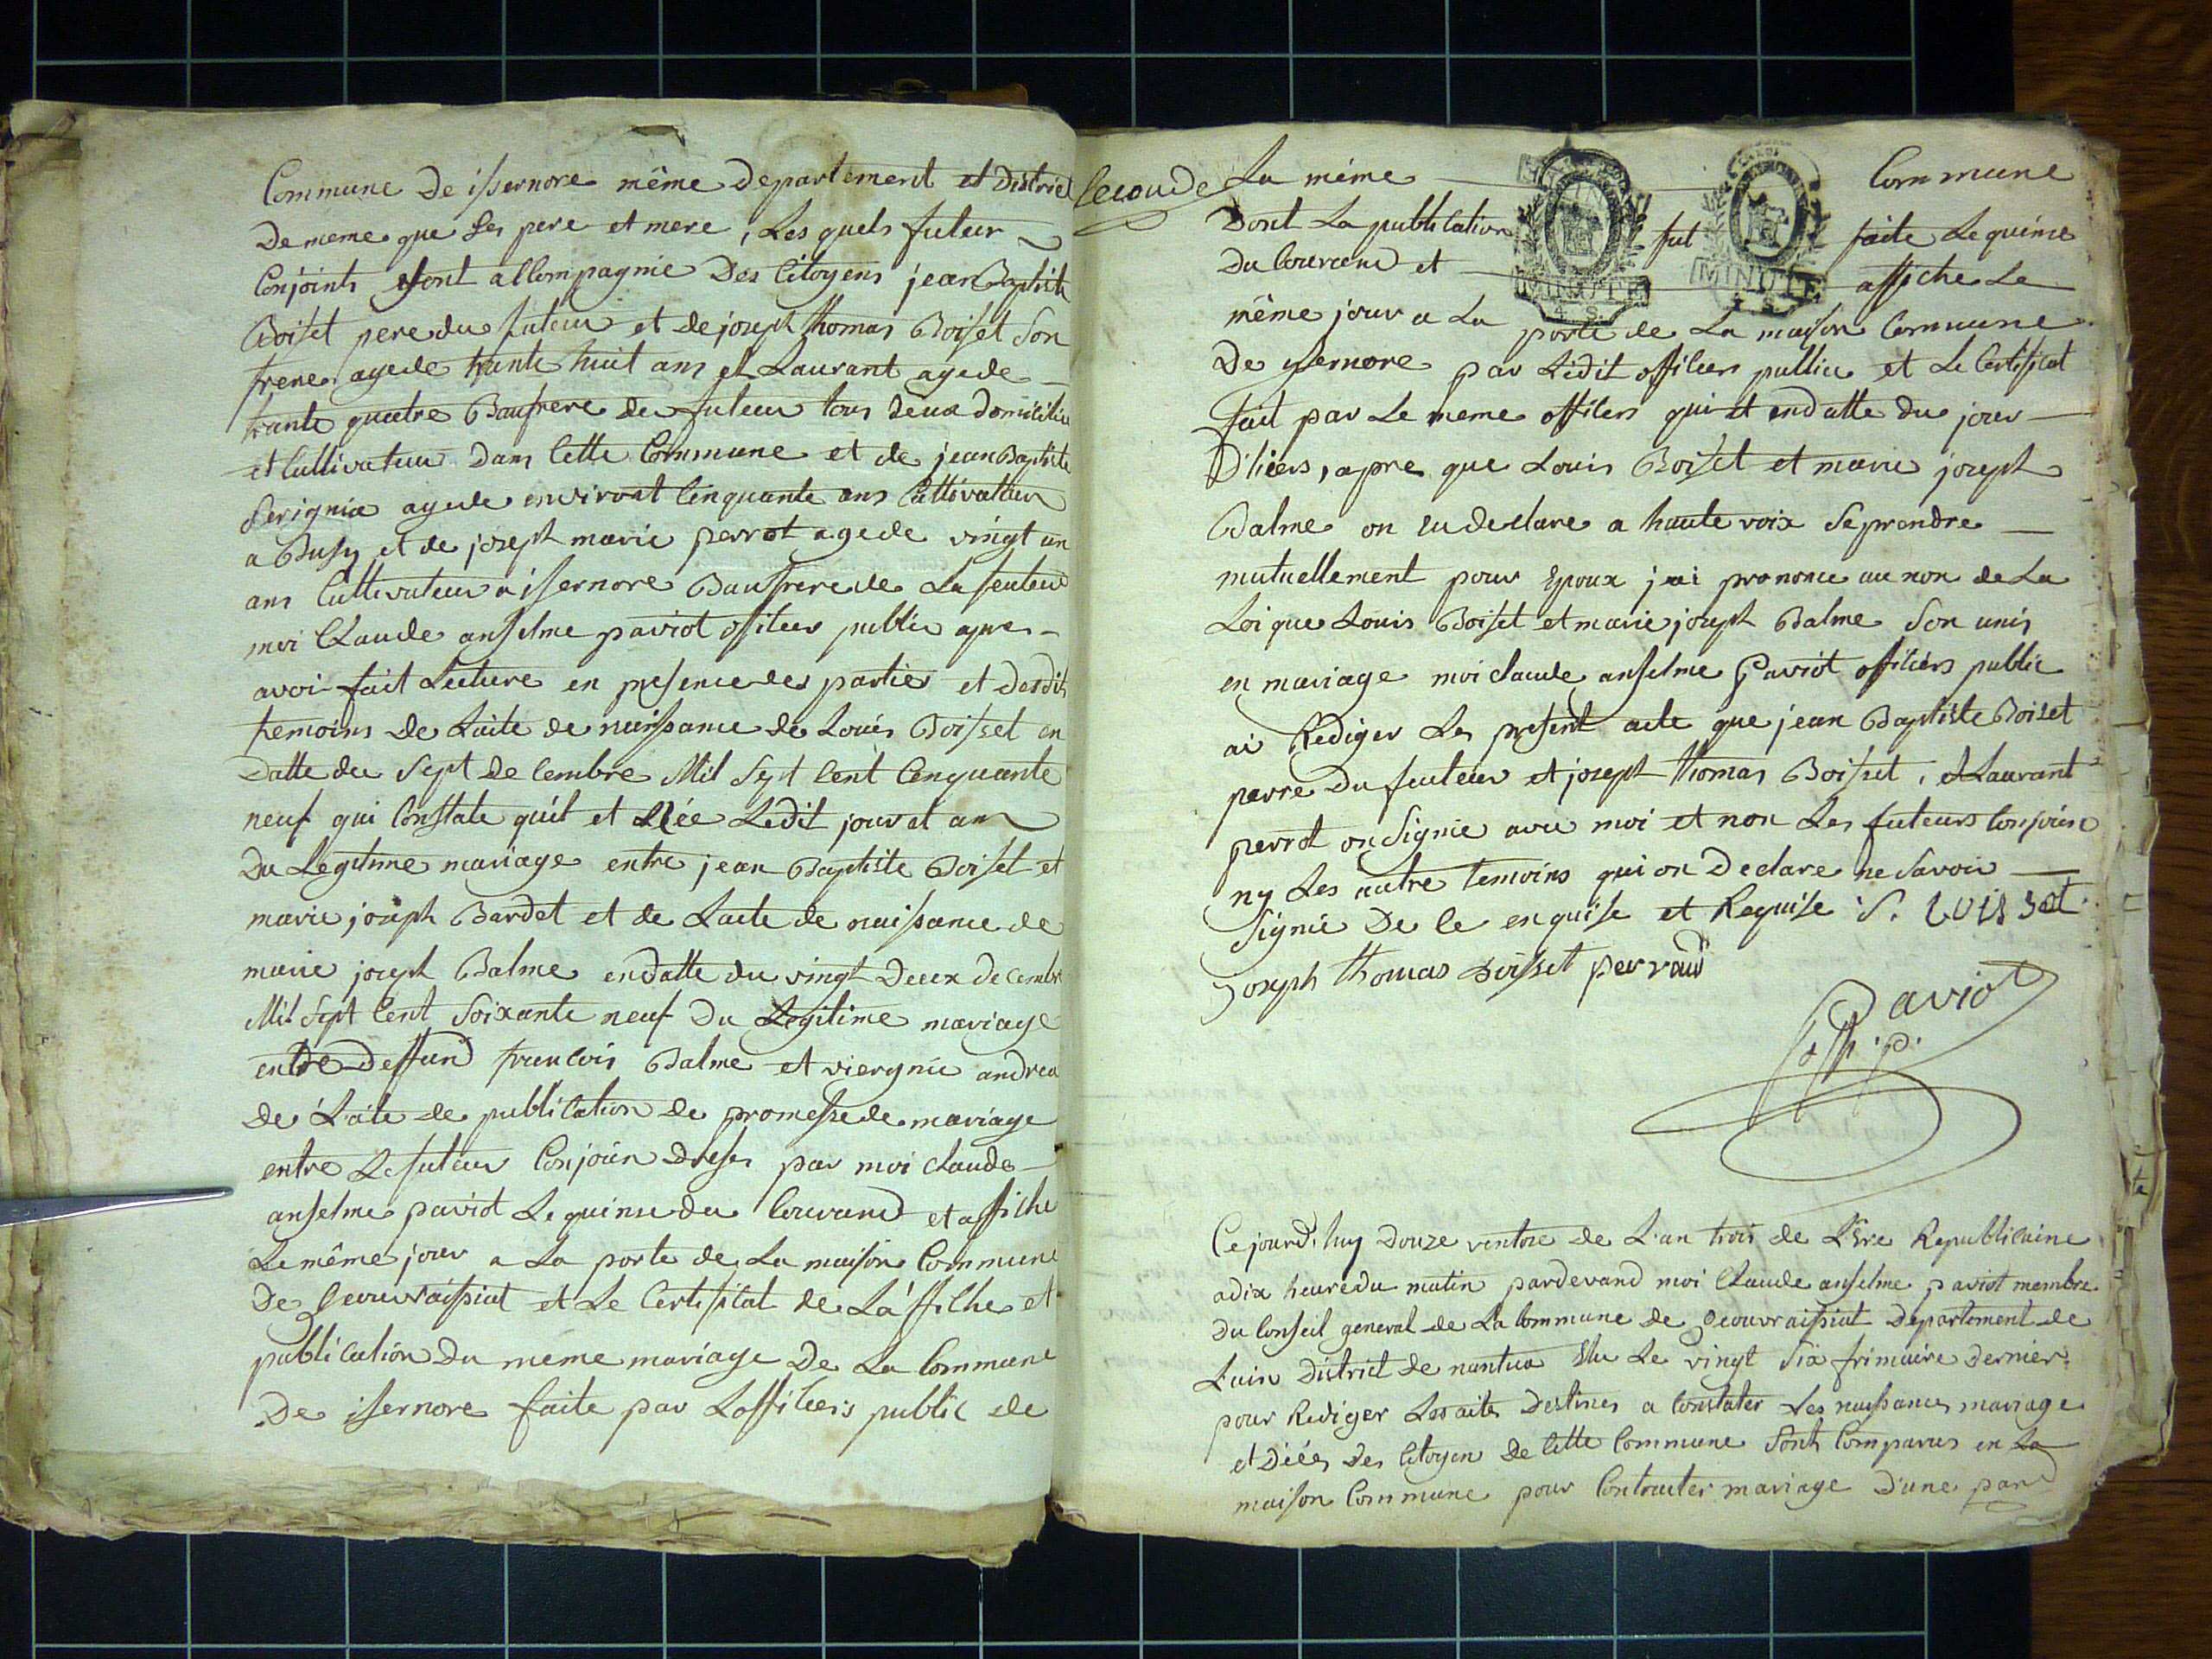 Commune De issernore même Departement et District
De meme que Ses pere et mere, Les quels futeur
Conjoints sont accompagnie Des Citoyens jean Baptiste
Boisset pere du futeur et de joseph thomas Boisset Son
frere agede trante huit ans et Laurant agede
trante quatre Baufrere du futeur tous deux domicilie
et Cultivateur Dans Cette Commune et de jean Baptiste
Serignia agede environt Cinquante ans Cultivateur
a Busy et de joseph marie perrot agede vingt un
ans Cultivateur a issernore Baufrere de La futeur
moi Claude anselme paviot officier public apres
avoir fait Lecture en presence des parties et desdits
temoins de Lacte de naissance de Louis Boisset en
Datte du Sept De Cembre Mil Sept Cent Cenquante
neuf qui Constate quil et née Ledit jour et an
Du Legitime mariage entre jean Baptiste Boisset et
marie joseph Bardet et de Lacte de naissance de
marie joseph Balme en datte du vingt Deux de Cembre
Mil Sept Cent Soixante neuf Du Legitime mariage
entre Deffund francois Balme et viergnie andrea
de Lacte de publication de promesse de mariage
entre Le futeur Conjoin Dreses par moi Claude
anselme paviot Le quinse du Courrand et affiche
Le même jour a La porte de La maison Commune
De geouvraissiat et Le Certificat de Laffiche et
publication Du meme mariage De La Commune
De isernore faite par Lofficiers public de
Seconde
La même Commune
Dont La publication fut faite Le quinse
Du Courrend et affiche Le
même jour a La porte de La maison Commune
De ysernore par Ledit officiers public et Le Certificat
fait par Le meme officiers qui et endatte du jour
D'hiers, apre que Louis Boisset et marie joseph
Balme on eu declare a haute voix Se prendre
mutuellement pour Epoux j'ai prononce au non de La
Loi que Louis Boisset et marie joseph Balme Son unis
en mariage moi claude anselme Paviot officiers public
ai Rediger Les present acte que jean Baptiste Boiset
perre Du futeur et joseph thomas Boisset, et Laurant
perrot on Signie avec moi et non Les futeurs Conjoin
ny Les autre temoins qui on Declare ne Savoir
Signie De Ce enquise et Requise
joseph thomas boisset perraud
Paviot
off. p.
Ce jourd'huy Douze ventose de L'an trois de L'Ere Republicaine
adix heure du matin pardevand moi Claude anselme paviot membre
Du Conseil general de La Commune de geouvraissiat Departement de
Lain District de nantua Elu Le vingt Six frimaire Dernier
pour Rediger Les actes Destines a Constater Les naissances mariage
et Décés Des Citoyen de Cette Commune Sont Comparus en La
maison Commune pour Contracter mariage D'une pard
MINUTE
4. S.
MINUTE